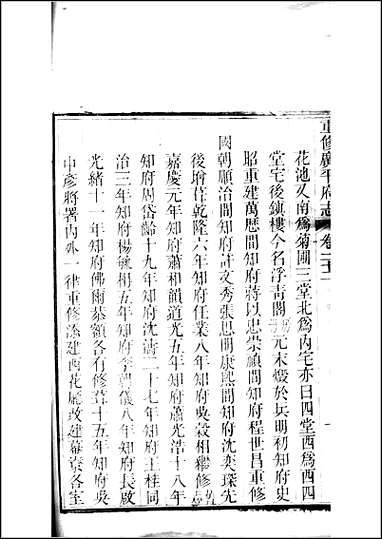 重修廣平府志 卷二十二
花池又南爲菊圃三堂北爲內宅亦曰四堂西爲西四
堂宅後鎮樓今名浮青閣元末燬於兵明初知府史
昭重建萬曆間知府蔣以忠崇禎間知府程世昌重修
國朝順治間知府許文秀張思明康熙間知府沈奕琛先
後增葺乾隆六年知府任業八年知府吳穀相繼修
嘉慶元年知府蕭和韻道光五年知府蕭光浩十八年
知府周岱齡十九年知府沈濤二十七年知府王桂同
治三年知府楊毓枏五年知府李朝儀八年知府長啟
光緒十一年知府佛爾恭額各有修葺十五年知府吳
中彥將署內外一律重修添建西花廳改建幕賓各室